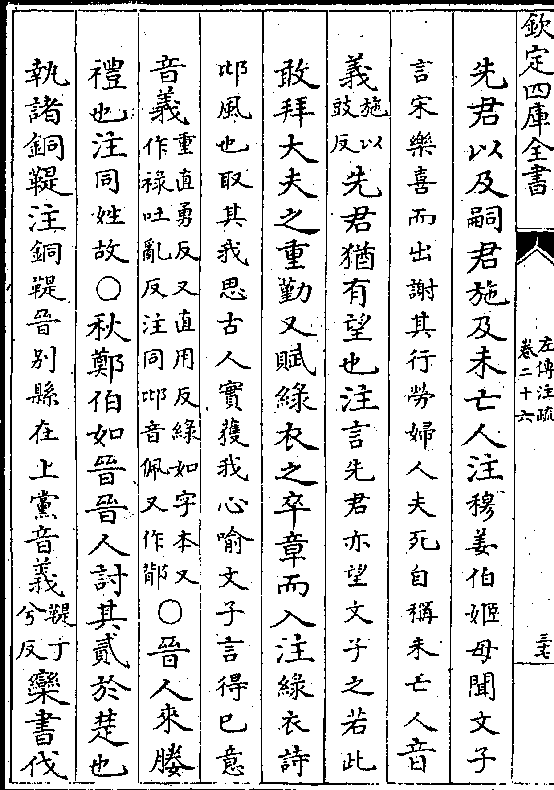 欽定四庫全書
左傳注疏
卷二十六
三七
先君以及嗣君施及未亡人注穆姜伯姬母聞文子
言宋樂喜而出謝其行勞婦人夫死自稱未亡人音
義施以豉反先君猶有望也注言先君亦望文子之若此
敢拜大夫之重勤又賦綠衣之卒章而入注綠衣詩
邶風也取其我思古人實獲我心喻文子言得已意
音義重直勇反又直用反綠如字本又作祿吐亂反注同邶音佩又作鄁○晉人來媵
禮也注同姓故○秋鄭伯如晉晉人討其貳於楚也
執諸銅鞮注銅鞮晉別縣在上黨音義鞮丁兮反欒書伐